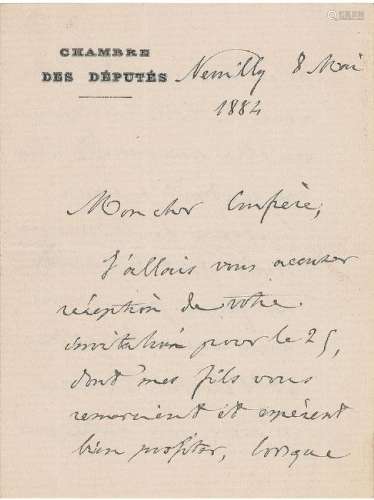 CHAMBRE
DES DÉPUTÉS
Neuilly 8 Mai
1884
Mon cher Confrère,
J'allais vous accuser
réception de votre
invitation pour le 25,
dont mes fils vous
remercient et espèrent
bien profiter, lorsque